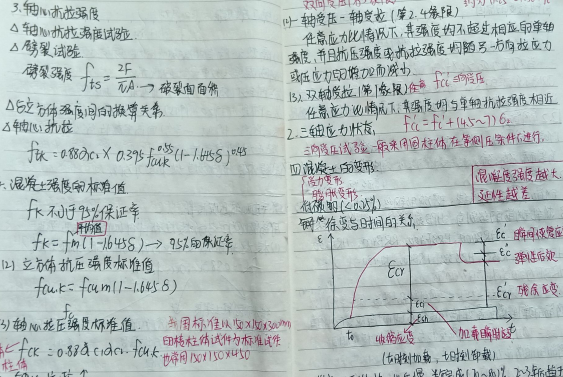 3.轴心抗拉强度
△轴心抗拉强度试验
△劈裂试验
劈裂强度 fts = 2F/πA → 破裂面面积
△与立方体强度间的换算关系
△轴心抗拉
ftk = 0.88αc2 × 0.395 fcu,k^0.55 (1-1.645δ)^0.45
混凝土强度的标准值
fk不小于95%保证率
平均值
fk = fm(1-1.645δ) → 95%的保证率
(2) 立方体抗压强度标准值
fcu.k = fcum(1-1.645δ)
(3)轴心抗压强度标准值
fck = 0.88αc1αc2·fcu.k
我国标准以150×150×300mm
的棱柱体试件为标准试件
也常用150×150×450
(4)一轴受压一轴受拉(第2.4象限)
任意应力比情况下,其强度均不超过相应的单轴
强度,并且抗压强度或抗拉强度均随另一方向拉应力
或压应力的增加而减小
(3)双轴受拉(第1象限)
任意应力比情况下,其强度均与单轴抗拉强度相近
2.三轴应力状态
fcc' = fc' + (4.5~7)σ2
三向受压试验一般采用圆柱体在等侧压条件下进行.
四 混凝土的变形
受力变形
体积变形
混凝土强度越大
延性越差
徐变与时间的关系
ε
εcr
εe 瞬时恢复应变
εe'' 弹性后效
εcr' 残余应变
εci
εsh
t0
t
收缩应变
加载瞬时应变